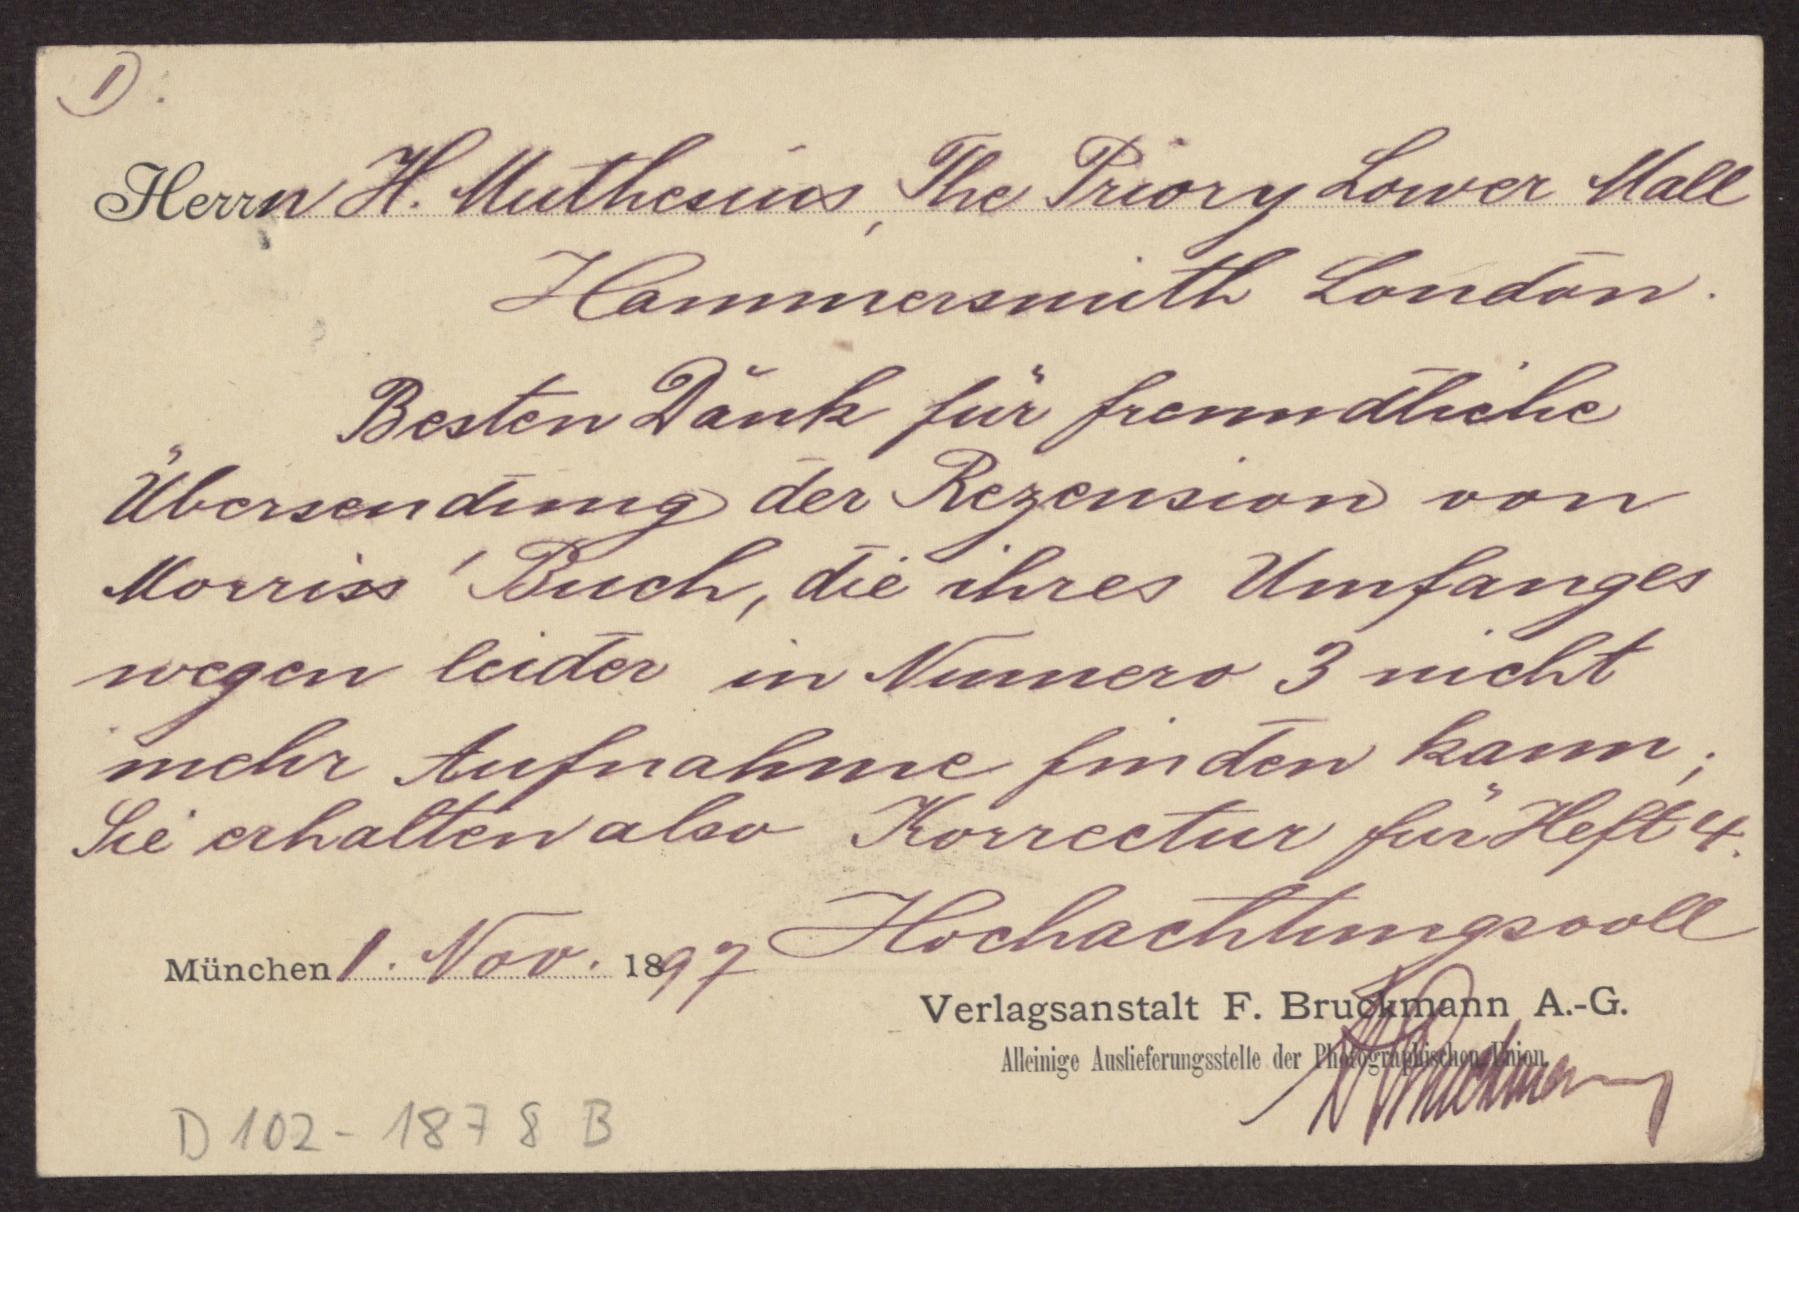 1).
Herrn H. Muthesius, The Priory Lower Mall
Hammersmith London.
Besten Dank für freundliche
Übersendung der Rezension von
Morris' Buch, die ihres Umfanges
wegen leider in Numero 3 nicht
mehr Aufnahme finden kann;
Sie erhalten also Korrectur für Heft 4.
Hochachtungsvoll
München 1. Nov. 1897
Verlagsanstalt F. Bruckmann A.-G.
Alleinige Auslieferungsstelle der Photographischen Union.
Bruckmann
D 102 - 1878 B